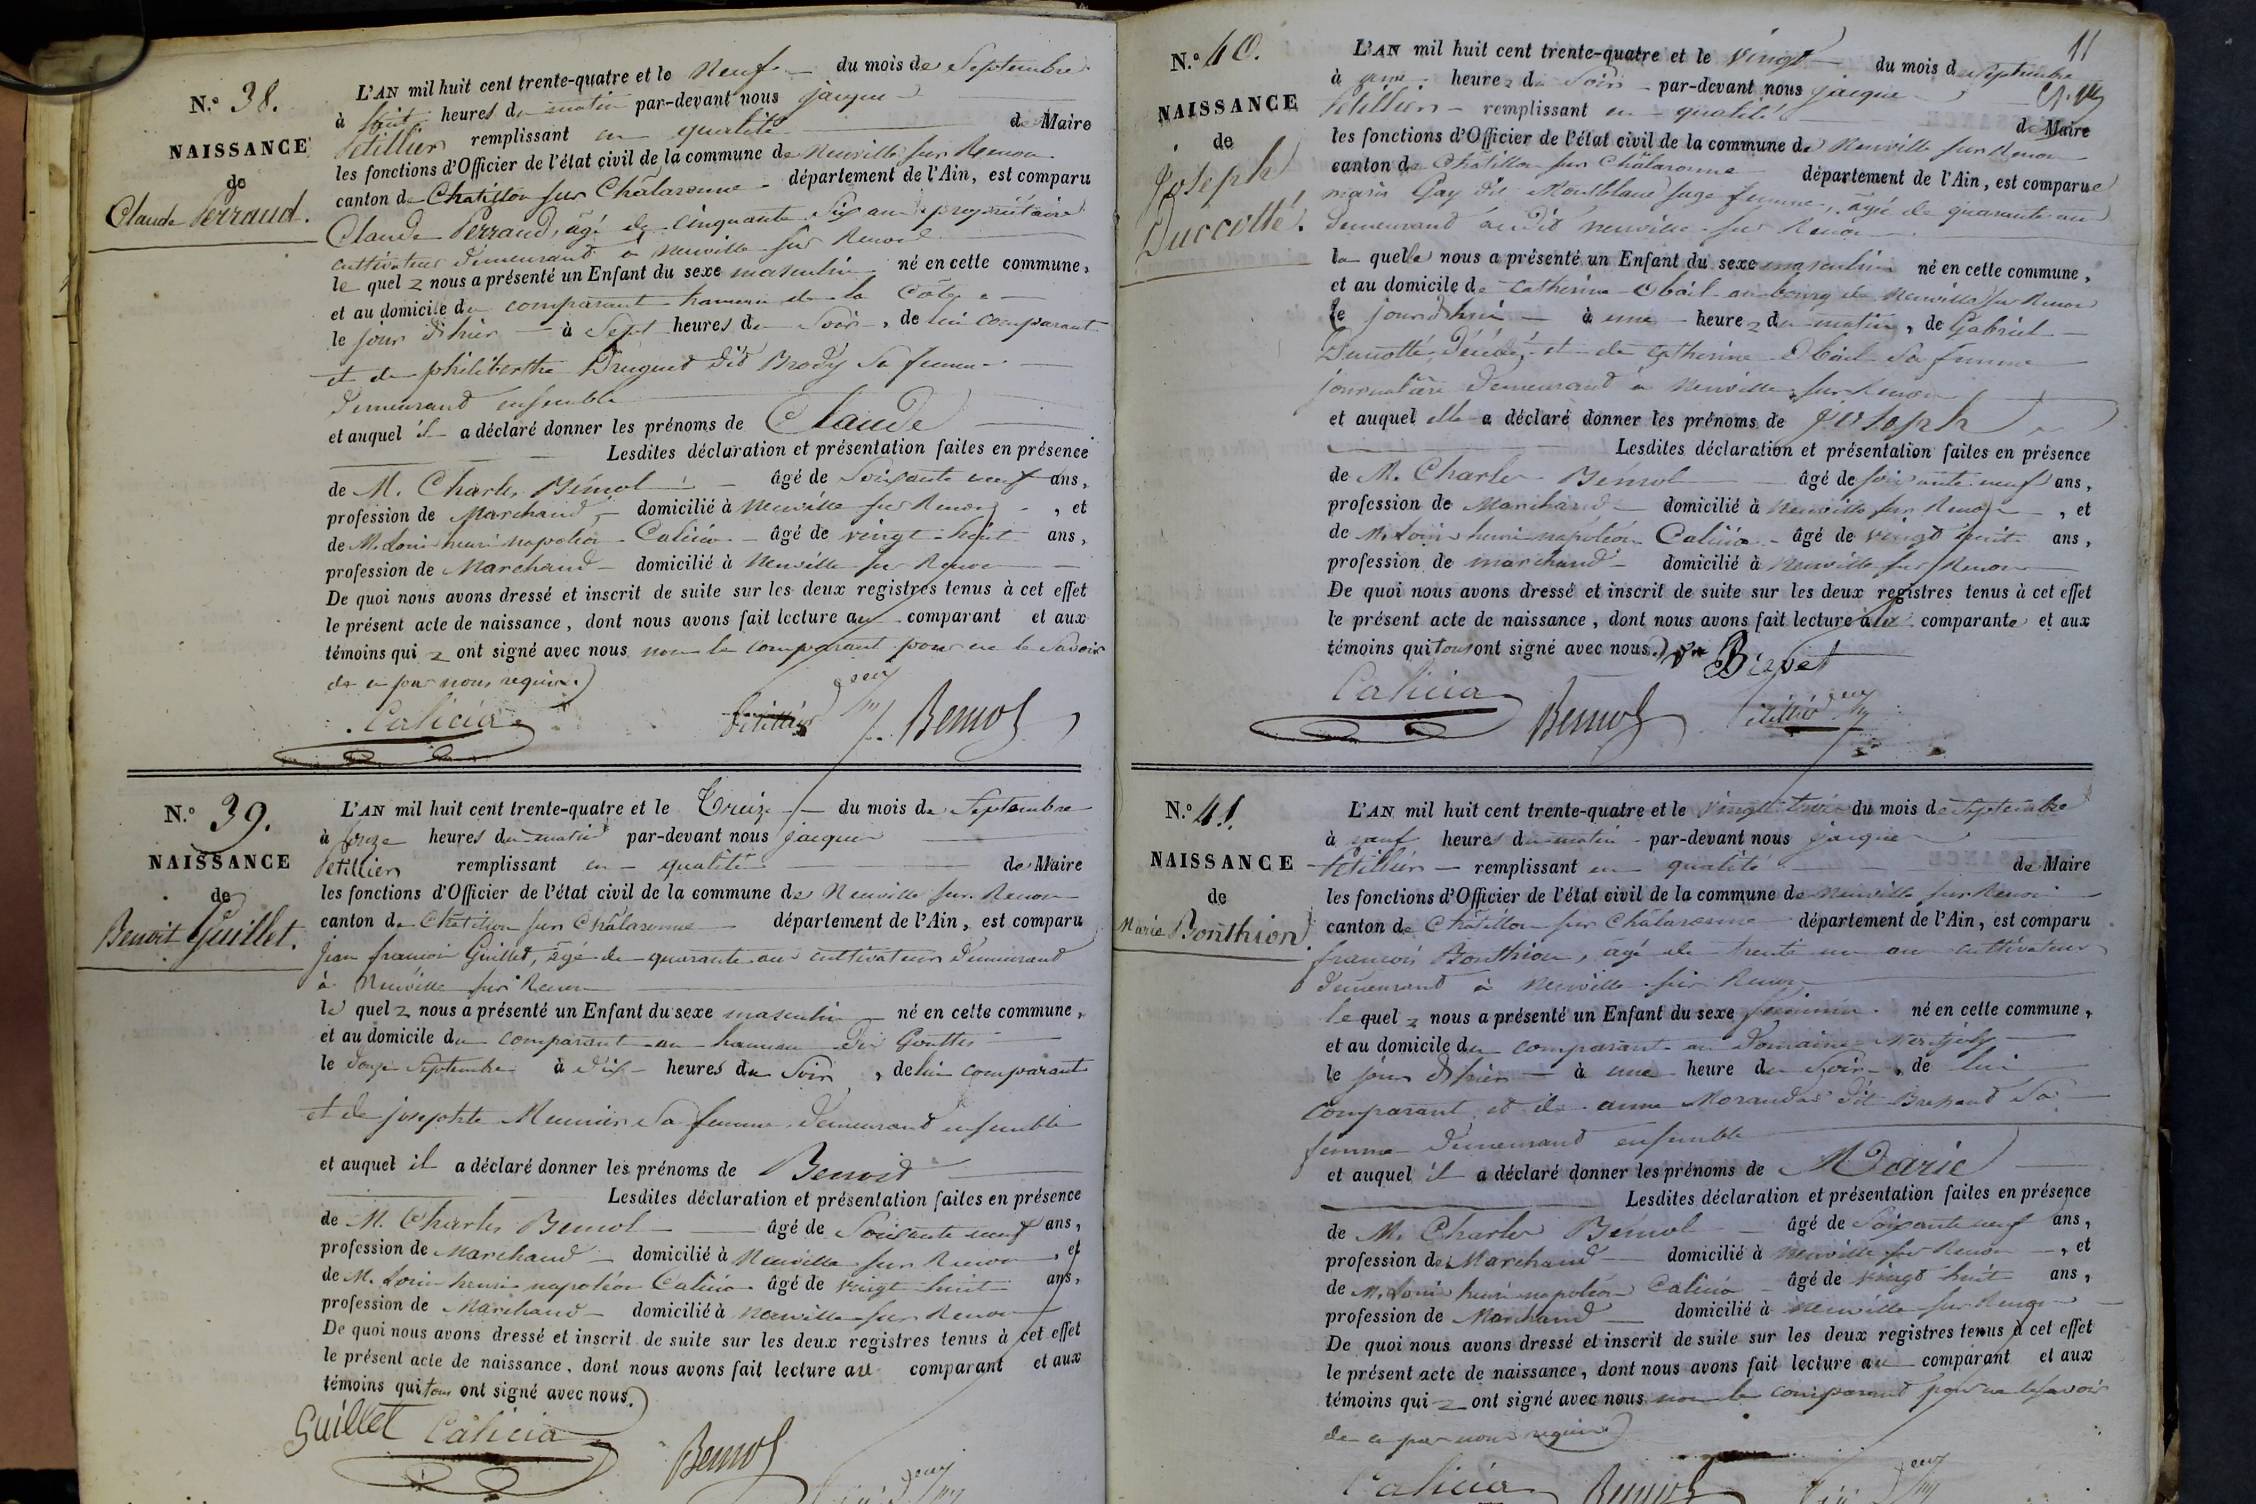 N.° 38.
NAISSANCE
de
Claude Perraud.
L'AN mil huit cent trente-quatre et le Neuf du mois de Septembre
à huit heures du matin par-devant nous jacques
Petillier remplissant en qualité de Maire
les fonctions d'Officier de l'état civil de la commune de Neuville sur Renon
canton de Chatillon sur Châlaronne département de l'Ain, est comparu
Claude Perraud, âgé de cinquante six ans propriétaire
cultivateur demeurant à Neuville sur Renon
le quel nous a présenté un Enfant du sexe masculin né en cette commune,
et au domicile du comparant hameau de la Côte
le jour d'hier à Sept heures du Soir, de lui comparant
et de philiberthe Druguet dit Brody sa femme
demeurant ensemble
et auquel il a déclaré donner les prénoms de Claude
Lesdites déclaration et présentation faites en présence
de M. Charles Bémol âgé de Soixante neuf ans,
profession de Marchand domicilié à Neuville sur Renon, et
de M. Louis henri napoléon Calicia âgé de vingt-huit ans,
profession de Marchand domicilié à Neuville sur Renon
De quoi nous avons dressé et inscrit de suite sur les deux registres tenus à cet effet
le présent acte de naissance, dont nous avons fait lecture au comparant et aux
témoins qui ont signé avec nous non le comparant pour ne le Savoir
de ce par nous requis.
Calicia Petillier Bemol
N.° 39.
NAISSANCE
de
Benoit Guillet.
L'AN mil huit cent trente-quatre et le Treize du mois de Septembre
à onze heures du matin par-devant nous jacques
Petillier remplissant en qualité de Maire
les fonctions d'Officier de l'état civil de la commune de Neuville sur Renon
canton de Châtillon sur Châlaronne département de l'Ain, est comparu
jean francois Guillet, âgé de quarante ans cultivateur demeurant
à Neuville sur Renon
le quel nous a présenté un Enfant du sexe masculin né en cette commune,
et au domicile du comparant au hameau des Gouttes
le douze Septembre à dix heures du Soir, de lui comparant
et de josephte Meunier sa femme demeurant ensemble
et auquel il a déclaré donner les prénoms de Benoit
Lesdites déclaration et présentation faites en présence
de M. Charles Bemol âgé de Soixante neuf ans,
profession de Marchand domicilié à Neuville sur Renon, et
de M. Louis henri napoléon Calicia âgé de vingt huit ans,
profession de Marchand domicilié à Neuville sur Renon
De quoi nous avons dressé et inscrit de suite sur les deux registres tenus à cet effet
le présent acte de naissance, dont nous avons fait lecture au comparant et aux
témoins qui tous ont signé avec nous.
Guillet Calicia Bemol
11
N.° 40.
NAISSANCE
de
Joseph
Duccotté.
L'AN mil huit cent trente-quatre et le vingt du mois de Septembre
à heures du Soir par-devant nous jacques
Petillier remplissant en qualité de Maire
les fonctions d'Officier de l'état civil de la commune de Neuville sur Renon
canton de Châtillon sur Châlaronne département de l'Ain, est comparue
marie Gay dit Montblanc sage femme, âgée de quarante ans
demeurant au dit neuville sur Renon
la quelle nous a présenté un Enfant du sexe masculin né en cette commune,
et au domicile de Catherine au bourg de Neuville sur Renon
le jourd'hui à une heure du matin, de Gabriel
Duccotté, décédé et de Catherine sa femme
journalière demeurant à Neuville sur Renon
et auquel elle a déclaré donner les prénoms de Joseph
Lesdites déclaration et présentation faites en présence
de M. Charles Bémol âgé de soixante neuf ans,
profession de Marchand domicilié à Neuville sur Renon, et
de M. Louis henri napoléon Calicia âgé de vingt huit ans,
profession de marchand domicilié à Neuville sur Renon
De quoi nous avons dressé et inscrit de suite sur les deux registres tenus à cet effet
le présent acte de naissance, dont nous avons fait lecture à la comparante et aux
témoins qui tous ont signé avec nous.
Calicia Bemol Petillier
N.° 41.
NAISSANCE
de
Marie Bonthion.
L'AN mil huit cent trente-quatre et le vingt trois du mois de Septembre
à neuf heures du matin par-devant nous jacques
Petillier remplissant en qualité de Maire
les fonctions d'Officier de l'état civil de la commune de Neuville sur Renon
canton de Châtillon sur Châlaronne département de l'Ain, est comparu
francois Bonthion, âgé de trente un ans cultivateur
demeurant à Neuville sur Renon
le quel nous a présenté un Enfant du sexe féminin né en cette commune,
et au domicile du comparant au Domaine
le jour d'hier à une heure du Soir, de lui
comparant et de anne Morandat dit Bressand sa
femme demeurant ensemble
et auquel il a déclaré donner les prénoms de Marie
Lesdites déclaration et présentation faites en présence
de M. Charles Bémol âgé de Soixante neuf ans,
profession de Marchand domicilié à Neuville sur Renon, et
de M. Louis henri napoléon Calicia âgé de vingt huit ans,
profession de Marchand domicilié à Neuville sur Renon
De quoi nous avons dressé et inscrit de suite sur les deux registres tenus à cet effet
le présent acte de naissance, dont nous avons fait lecture au comparant et aux
témoins qui ont signé avec nous non le comparant pour ne le savoir
de ce par nous requis
Calicia Bemol